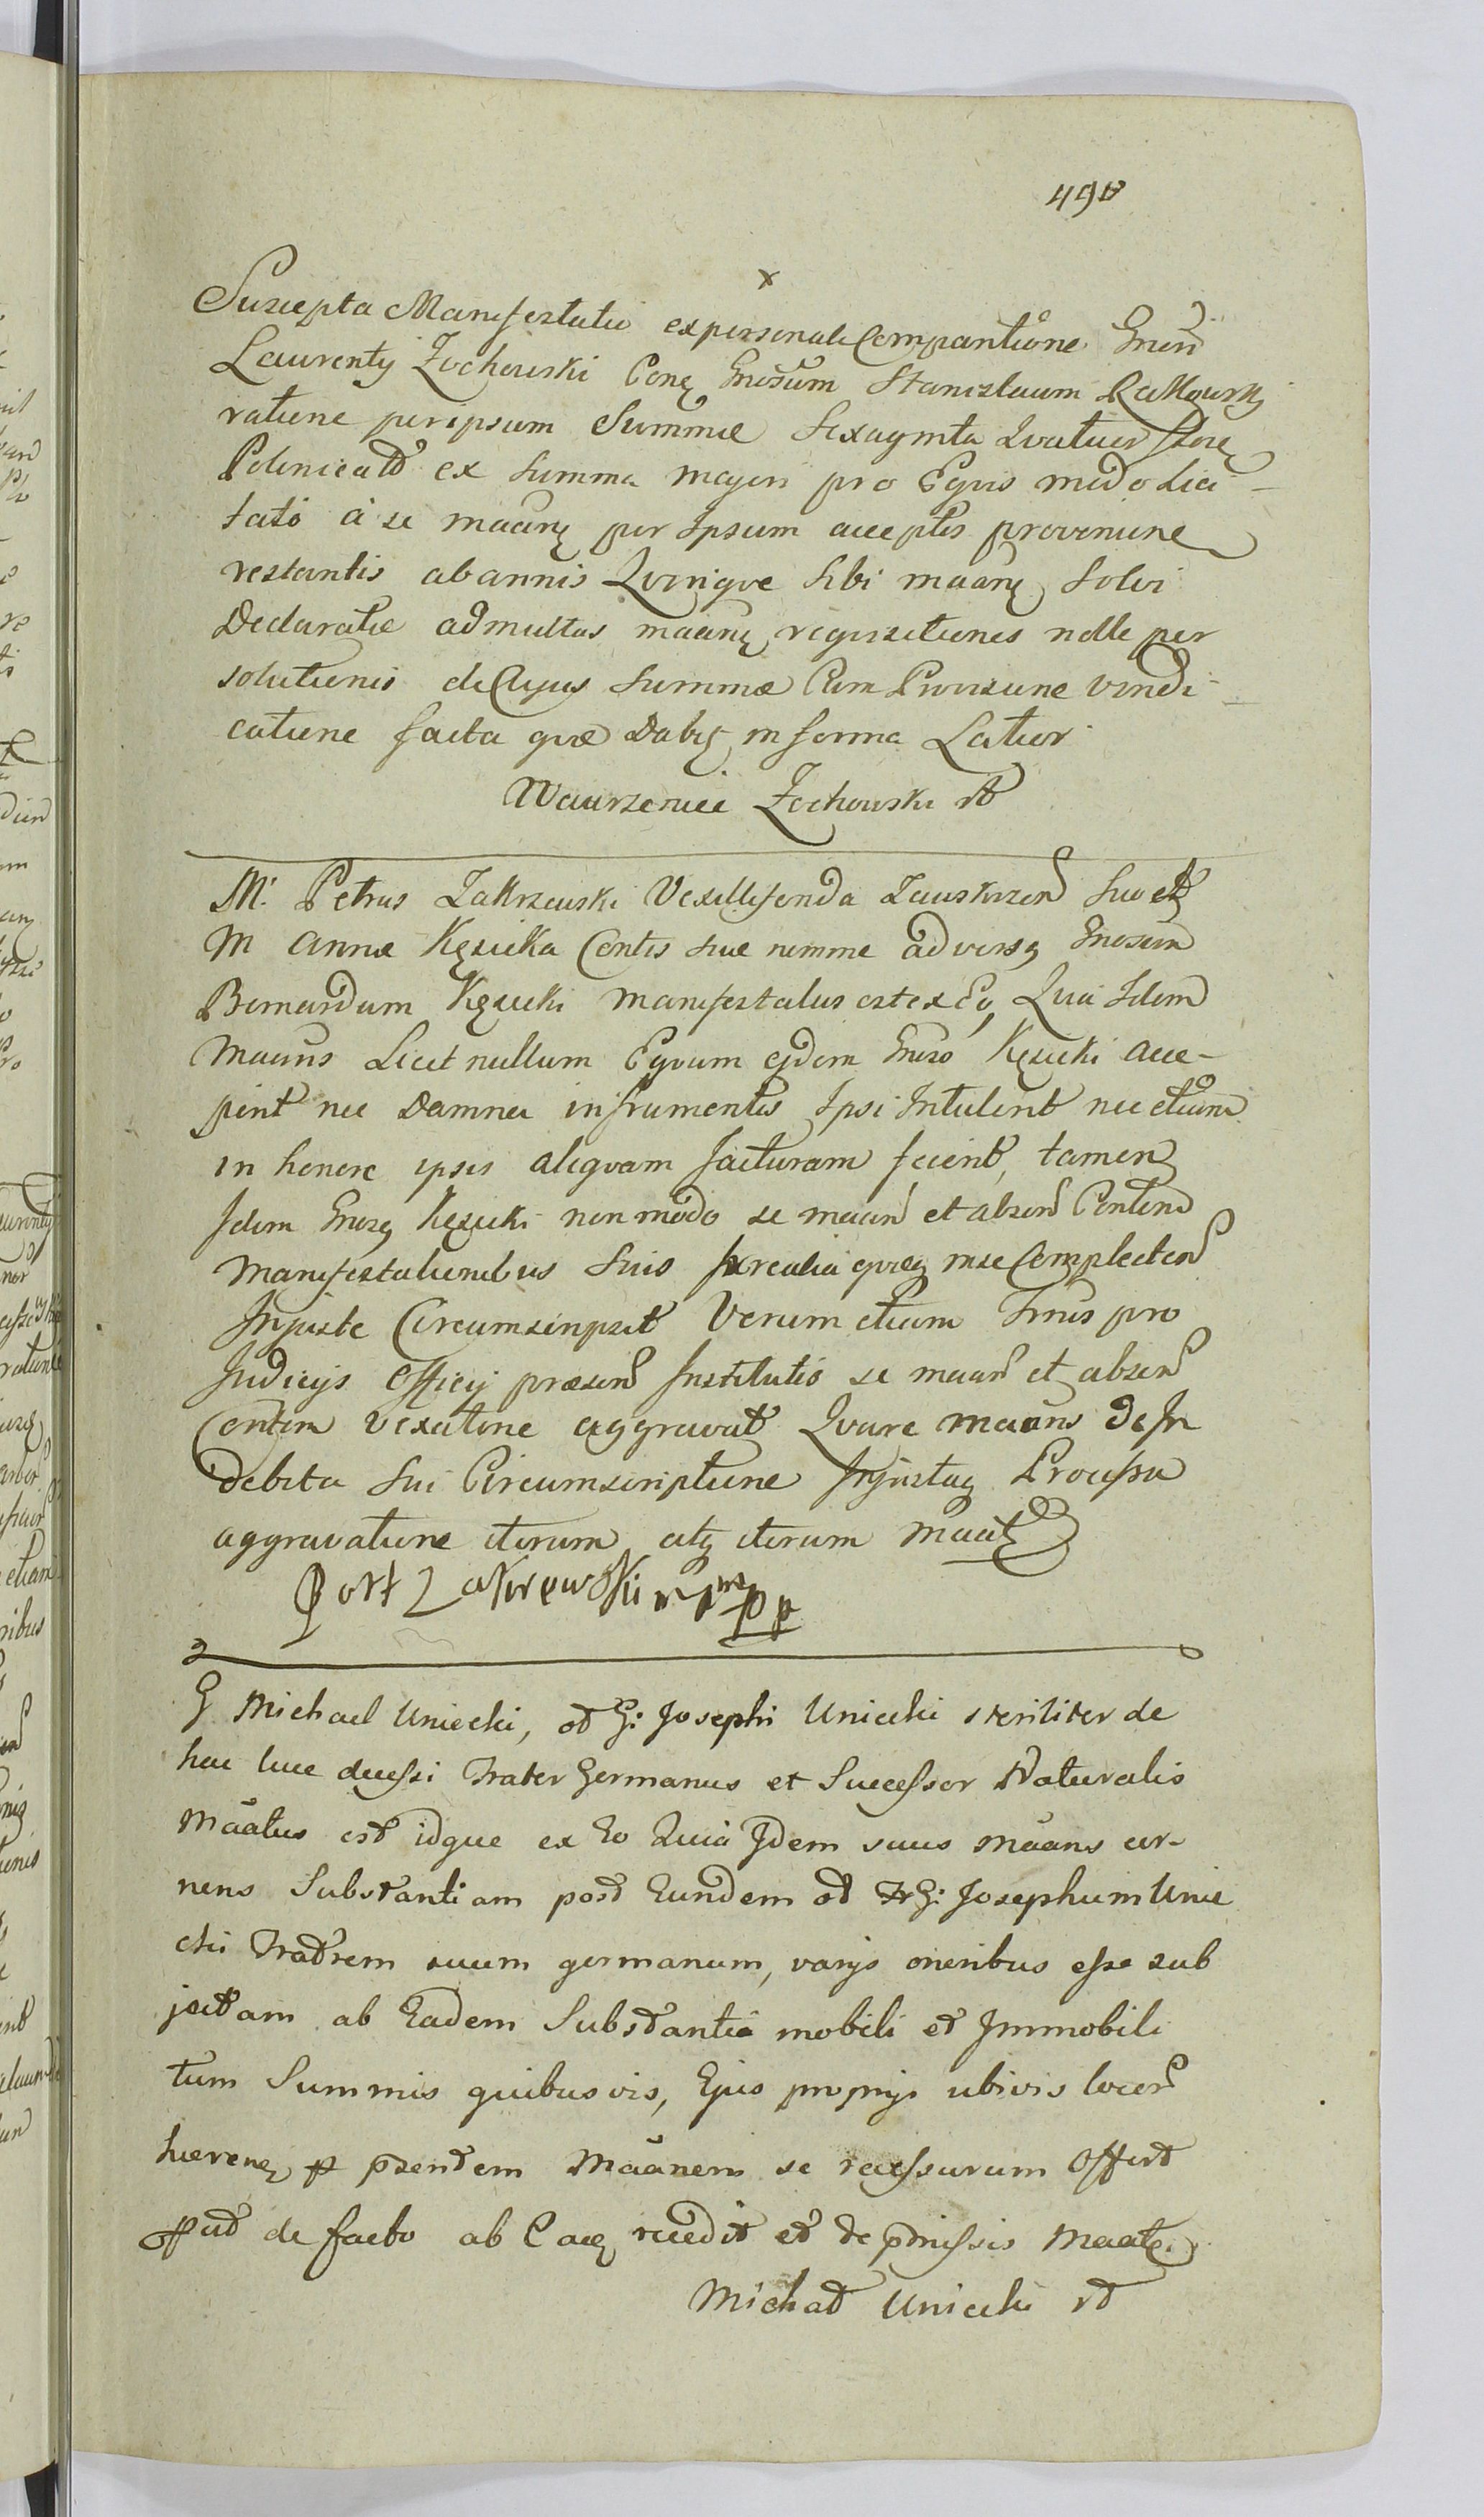 490
x
Suscepta Manifestatio ex personali Comparitione Gnosi
Laurentij Żochowski Conq Gnosum Stanislaum Rakowsk
ratione per ipsum Summæ Sexaginta Qvatuor flore
Polonicalt ex Summa majori pro Eqvis modo Lici-
tato à se maanq per Ipsum acceptis provenine
restantis ab annis Qvinqve sibi maanq solvi
Declaratæ ad multas maanq reqvisitiones nolle per
solutionis de Cujus Summæ Cum Provisione vindi-
catione facta qvæ Dabit in forma Latior
Wawrzeniec Żochowski
M. Petrus Zakrzewski Vexillifonda Zawskrzen Suo et
M Annæ Kęsicka Contis suæ nomine adversq Gnosum
Bernardum Kęsicki manifestatus est ex Eo, Qvia Idem
Maans Licet nullum Eqvum ejdem Gnoso Kęsicki acce-
perit nec Damna in frumentis Ipsi Intulerit nec etiam
in honore ipsis aliqvam facturam fecerit, tamen
Idem Gnosq Kęsicki non modo se maan et absen Conten
Manifestationibus Suis realia qvæq in se Complecten
Injuste Circumscripsit Verum etiam Trnis pro
Judicijs Officij præsen Institutis se maan et absen
Contem vexatione aggravat Qvare maans de In
debita Sui Circumscriptione Injustaq Processu
aggravatione iterum atq iterum maat
Piotr Zakrzewski mpp
G Michael Uniecki, od G: Josephi Uniecki steriliter de
hac luce decessi Frater Germanus et Successor Naturalis
Maatus est idque ex Eo Quia Idem suus Maans cer-
nens Substantiam post Eundem od G: Josephum Unie
cki Fratrem suum germanum, varijs oneribus esse sub
jectam ab Eadem Substantia mobili et Immobili
tum Summis quibusvis, Ejus proprijs ubivis locor
hæreneq p psentem Maanem se recessurum Offert
de facto ab Eaq recedit et de pmissis Maat.
Michał Uniecki